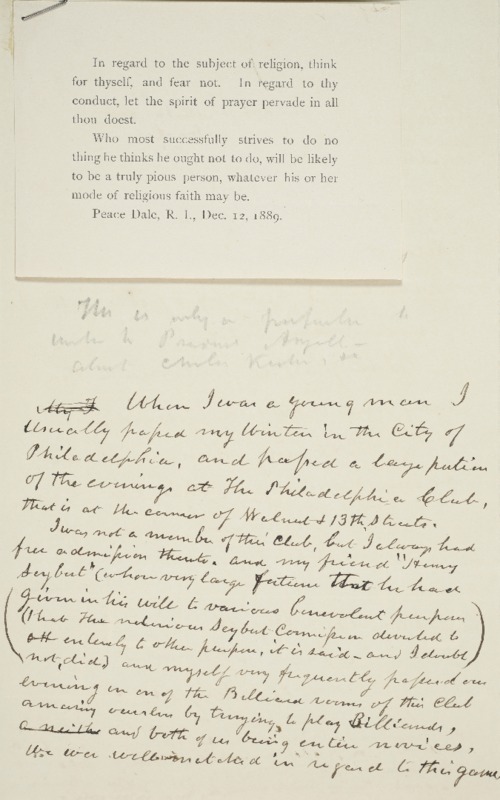 In regard to the subject of religion, think
for thyself, and fear not. In regard to thy
conduct, let the spirit of prayer pervade in all
thou doest.
Who most successfully strives to do no
thing he thinks he ought not to do, will be likely
to be a truly pious person, whatever his or her
mode of religious faith may be.
Peace Dale, R. I., Dec. 12, 1889.
This is only a
Angell
about
When I was a young man I
usually passed my Winter in the City of
Philadelphia, and passed a large portion
of the evenings at The Philadelphia Club,
that is at the corner of Walnut & 13th Streets.
I was not a member of this Club, but I always had
free admission thereto. and my friend "Henry
Seybert" (whose very large fortune that he had
given in his will to various benevolent purposes
(that the notorious Seybert Commission devoted to
entirely to other purposes, it is said - and I doubt
not, did) and myself very frequently passed our
evening in one of the Billiard rooms of this Club
amusing ourselves by trying, to play Billiards,
and both of us being entire novices,
we were well matched in regard to this game